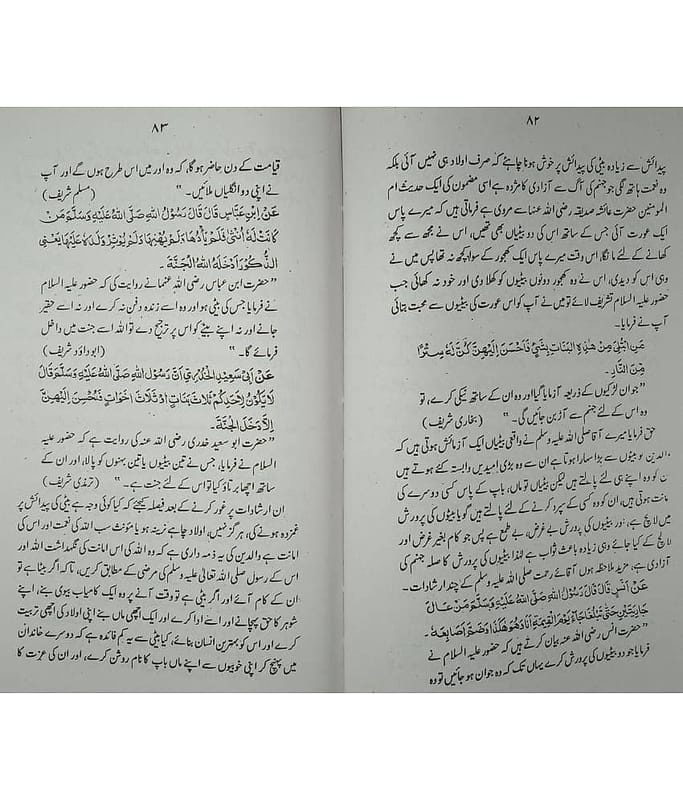 ۸۲
پیدائش سے زیادہ بیٹی کی پیدائش پر خوش ہونا چاہئے کہ صرف اولاد ہی نہیں آئی بلکہ
وہ نعمت ہاتھ لگی جو جہنم کی آگ سے آزادی کا مژدہ ہے اسی مضمون کی ایک حدیث ام
المومنین حضرت عائشہ صدیقہ رضی اللہ عنہا سے مروی ہے فرماتی ہیں کہ میرے پاس
ایک عورت آئی جس کے ساتھ اس کی دو بیٹیاں بھی تھیں، اس نے مجھ سے کچھ
کھانے کے لئے مانگا اس وقت میرے پاس ایک کھجور کے سوا کچھ نہ تھا پس میں نے
وہی اس کو دیدی، اس نے وہ کھجور دونوں بیٹیوں کو کھلا دی اور خود نہ کھائی جب
حضور علیہ السلام تشریف لائے تو میں نے آپ کو اس عورت کی بیٹیوں سے محبت بتائی
آپ نے فرمایا۔
مَنِ ابْتُلِیَ مِنْ هٰذِهِ الْبَنَاتِ بِشَیْءٍ فَاَحْسَنَ اِلَیْهِنَّ کُنَّ لَهٗ سِتْرًا
مِّنَ النَّارِ۔
”جو ان لڑکیوں کے ذریعہ آزمایا گیا اور وہ ان کے ساتھ نیکی کرے، تو
وہ اس کے لئے جہنم سے آڑ بن جائیں گی۔“ (بخاری شریف)
حق فرمایا میرے آقا صلی اللہ علیہ وسلم نے واقعی بیٹیاں ایک آزمائش ہوتی ہیں کہ
والدین کو بیٹوں سے بڑا سہارا ہوتا ہے ان سے وہ بڑی امیدیں وابستہ کئے ہوتے ہیں
ان کو وہ اپنے ہی لئے پالتے ہیں لیکن بیٹیاں تو ماں، باپ کے پاس کسی دوسرے کی
امانت ہوتی ہیں، ان کو وہ کسی کے سپرد کرنے کے لئے پالتے ہیں گویا بیٹوں کی پرورش
میں لالچ ہے، اور بیٹیوں کی پرورش بے غرض، بے طمع ہے پس جو کام بغیر غرض اور
لالچ کے کیا جائے وہی زیادہ باعث ثواب ہے لہٰذا بیٹیوں کی پرورش کا صلہ جہنم کی
آزادی ہے، مزید ملاحظہ ہوں آقائے رحمت صلی اللہ علیہ وسلم کے چند ارشادات۔
عَنْ اَنَسٍ قَالَ قَالَ رَسُوْلُ اللهِ صَلَّی اللهُ عَلَیْهِ وَسَلَّمَ مَنْ عَالَ
جَارِیَتَیْنِ حَتّٰی تَبْلُغَا جَآءَ یَوْمَ الْقِیٰمَةِ اَنَا وَهُوَ هٰکَذَا وَضَمَّ اَصَابِعَهٗ۔
”حضرت انس رضی اللہ عنہ بیان کرتے ہیں کہ حضور علیہ السلام نے
فرمایا جو دو بیٹیوں کی پرورش کرے یہاں تک کہ وہ جوان ہو جائیں تو وہ
۸۳
قیامت کے دن حاضر ہو گا، کہ وہ اور میں اس طرح ہوں گے اور آپ
نے اپنی دو انگلیاں ملائیں۔“ (مسلم شریف)
عَنْ اِبْنِ عَبَّاسٍ قَالَ قَالَ رَسُوْلُ اللهِ صَلَّی اللهُ عَلَیْهِ وَسَلَّمَ مَنْ
کَانَتْ لَهٗ اُنْثٰی فَلَمْ یَأْدِهَا وَلَمْ یُهِنْهَا وَلَمْ یُوْثِرْ وَلَدَهٗ عَلَیْهَا یَعْنِی
الذُّکُوْرَ اَدْخَلَهُ اللهُ الْجَنَّةَ۔
”حضرت ابن عباس رضی اللہ عنہما نے روایت کی کہ حضور علیہ السلام
نے فرمایا جس کی بیٹی ہو اور وہ اسے زندہ دفن نہ کرے اور نہ اسے حقیر
جانے اور نہ اپنے بیٹے کو اس پر ترجیح دے تو اللہ اسے جنت میں داخل
فرمائے گا۔“ (ابو داؤد شریف)
عَنْ اَبِیْ سَعِیْدٍ الْخُدْرِیِّ اَنَّ رَسُوْلَ اللهِ صَلَّی اللهُ عَلَیْهِ وَسَلَّمَ قَالَ
لَا یَکُوْنُ لِاَحَدِکُمْ ثَلَاثُ بَنَاتٍ اَوْ ثَلَاثُ اَخَوَاتٍ فَیُحْسِنُ اِلَیْهِنَّ
اِلَّا دَخَلَ الْجَنَّةَ۔
”حضرت ابو سعید خدری رضی اللہ عنہ کی روایت ہے کہ حضور علیہ
السلام نے فرمایا، جس نے تین بیٹیوں یا تین بہنوں کو پالا، اور ان کے
ساتھ اچھا برتاؤ کیا تو اس کے لئے جنت ہے۔“ (ترمذی شریف)
ان ارشادات پر غور کرنے کے بعد فیصلہ کیجئے کہ کیا کوئی وجہ ہے بیٹی کی پیدائش پر
غمزدہ ہونے کی، ہرگز نہیں، اولاد چاہے نرینہ ہو یا مؤنث سب اللہ کی نعمت اور اس کی
امانت ہے والدین کی یہ ذمہ داری ہے کہ وہ اللہ کی اس امانت کی نگہداشت اللہ اور
اس کے رسول صلی اللہ تعالیٰ علیہ وسلم کی مرضی کے مطابق کریں، تاکہ اگر بیٹا ہے تو
ان کے کام آئے اور اگر بیٹی ہے تو وقت آنے پر وہ ایک کامیاب بیوی بنے، اپنے
شوہر کا حق پہچانے اور اسے ادا کرے اور ایک اچھی ماں بنے اپنی اولاد کی اچھی تربیت
کرے اور اس کو بہترین انسان بنائے، کیا بیٹی سے یہ کم فائدہ ہے کہ دوسرے خاندان
میں پہنچ کر اپنی خوبیوں سے اپنے ماں باپ کا نام روشن کرے، اور ان کی عزت کا